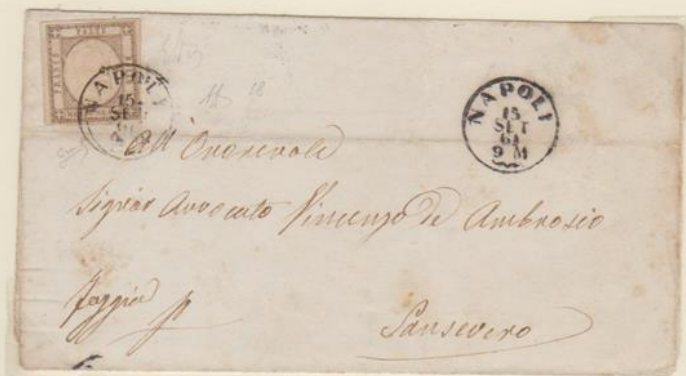 NAPOLI
15
SET
61
NAPOLI
15
SET
61
9 M
All' Onorevole
Signor Avvocato Vincenzo de Ambrosio
Foggia
Sansevero